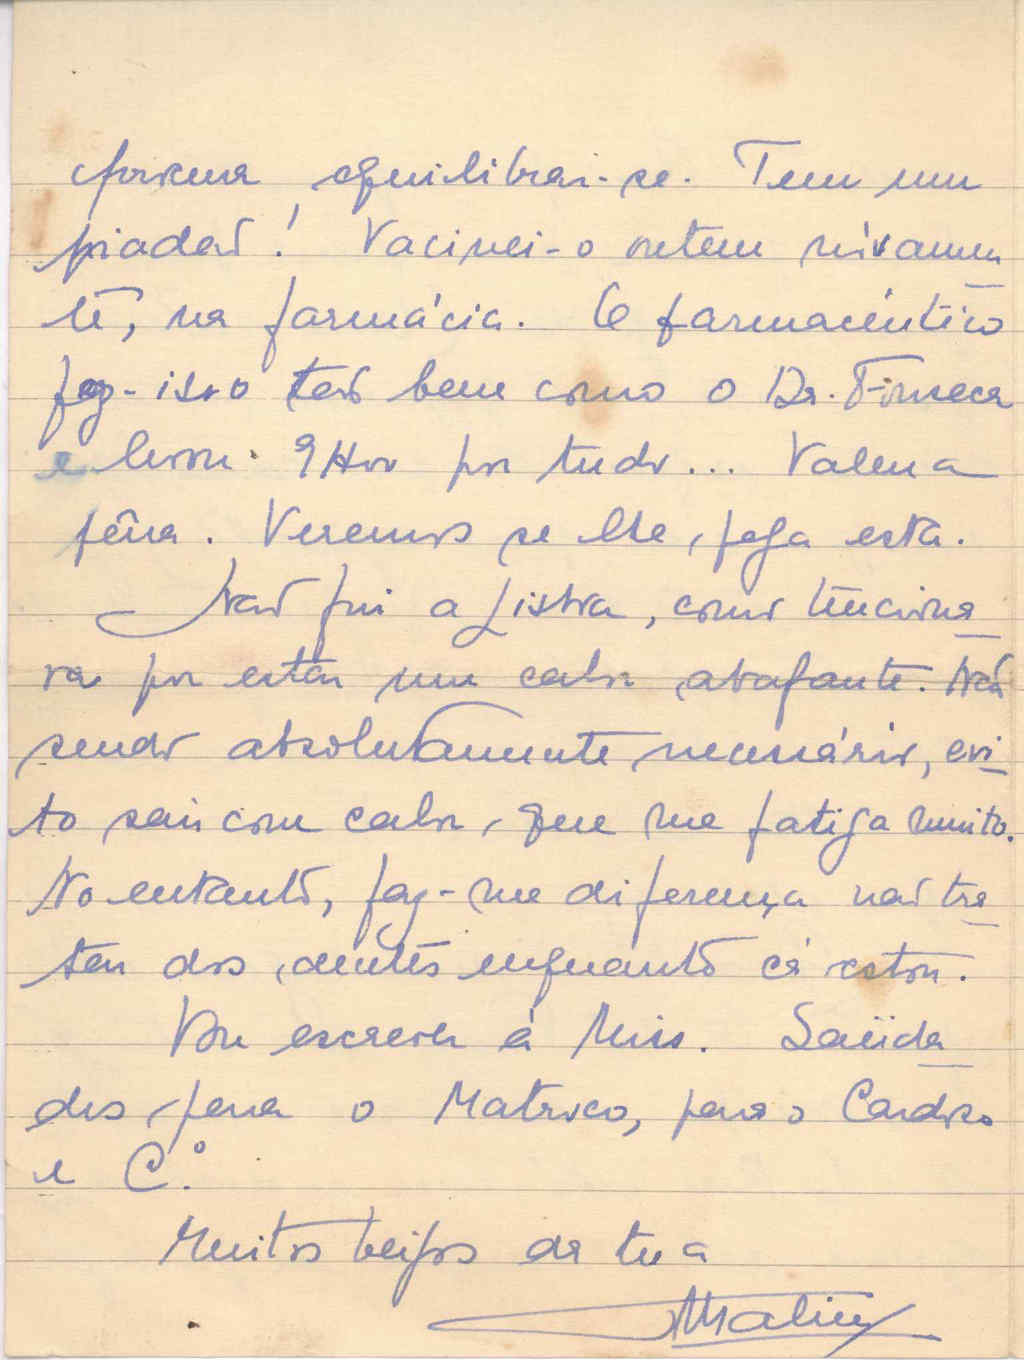 forma equilibrar-se. Tem um
piadão! Vacinei-o ontem nòvamen
te, na farmácia. O farmacêutico
faz-isso tão bem como o Dr. Fonseca
e levou por tudo... Valeu a
pêna. Veremos se lhe pega esta.
Não fui a Lisboa, como tenciona
va por estar um calor abafante. Não
sendo absolutamente necessário, evi
to sair com calor, que me fatiga muito.
No entanto, faz-me diferença não tra
tar dos dentes enquanto cá estou.
Vou escrever à Miss. Saüda
des para o Matroco, para o Cardoso
e C.º
Muitos beijos da tua